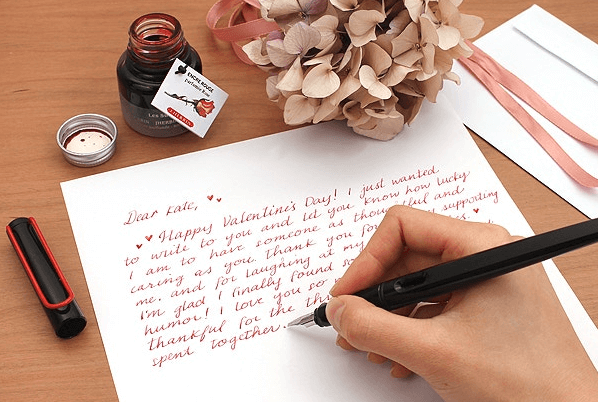 ENCRE ROUGE
parfumée Rose
J. HERBIN
Dear Kate,
Happy Valentine's Day! I just wanted
to write to you and let you know how lucky
I am to have someone as thoughtful and
caring as you. Thank you for supporting
me, and for laughing at my
I'm glad I finally found
humor! I love you so
thankful for the
spent together.